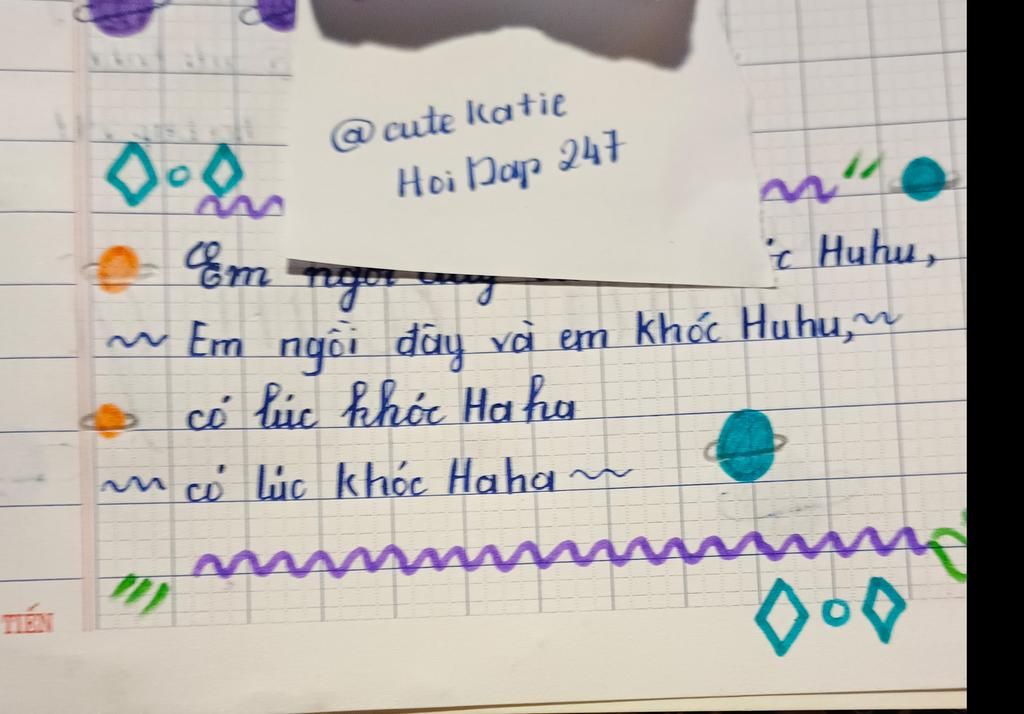 @cute Katie
Hoi Dap 247
Em ngồi đây Huhu,
~ Em ngồi đây và em khóc Huhu,~
có lúc khóc Ha ha
~ có lúc khóc Haha ~
TIẾN